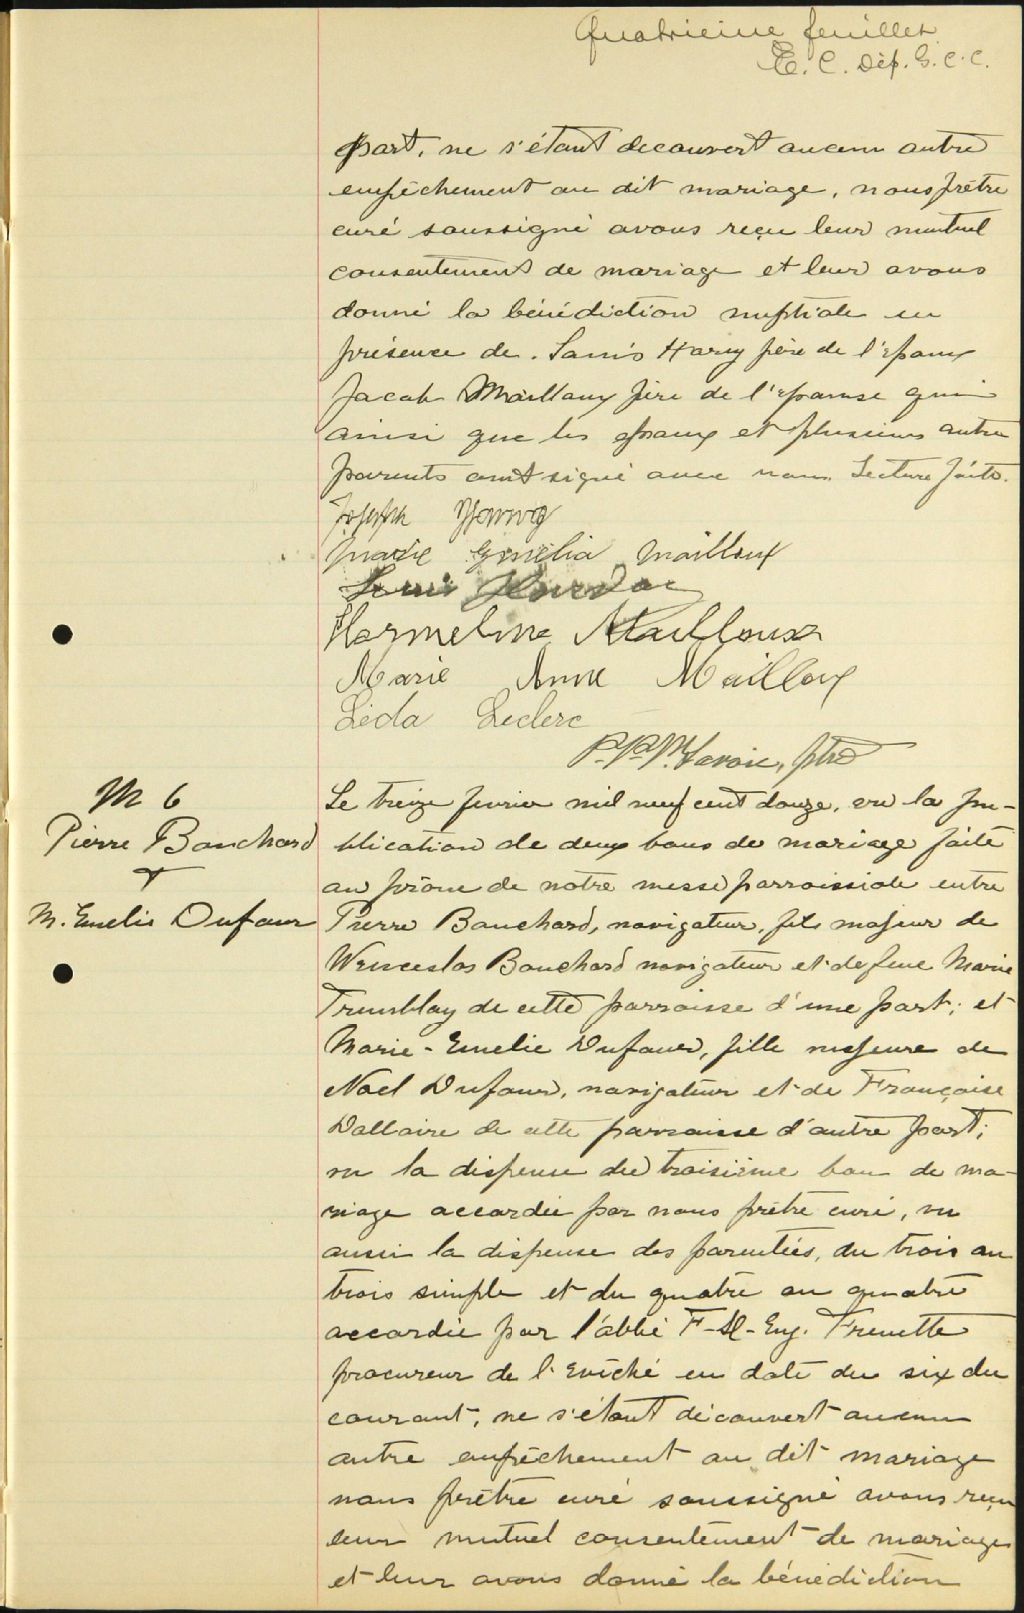 Quatrieme feuillet
E. C. Dép. G. C. C.
part, ne s'étant decouvert aucun autre
empêchement au dit mariage, nous prêtre
curé soussigné avons reçu leur mutuel
consentement de mariage et leur avons
donné la bénédiction nuptiale en
présence de Louis Harvy père de l'Epoux
Jacob Mailloux père de l'épouse qui
ainsi que les epoux et plusieurs autre
parents ont signé avec nous. Lecture faite.
Joseph
Marie Emélia Mailloux
Louis
Hermeline Mailloux
Marie Anne Mailloux
Léda Leclerc
Savoie, ptre
M 6
Pierre Bouchard
+
M. Emelie Dufour
Le treize fevrier mil neuf cent douze, vu la pu-
blication de deux bans de mariage faite
au prône de notre messe parroissiale entre
Pierre Bouchard, navigateur, fils majeur de
Wenceslas Bouchard navigateur et de feue Marie
Tremblay de cette parroisse d'une part; et
Marie-Emelie Dufour, fille majeure de
Noel Dufour, navigateur et de Françoise
Dallaire de cette parroisse d'autre part;
vu la dispense du troisième ban de ma-
riage accordée par nous prêtre curé, vu
aussi la dispense des parentées, du trois au
trois simple et du quatre au quatre
accordée par l'abbé F-X-Eug. Frenette
procureur de l'Evêché en date du six du
courant, ne s'étant découvert aucun
autre empêchement au dit mariage
nous prêtre curé soussigné avons reçu
leur mutuel consentement de mariage
et leur avons donné la bénédiction